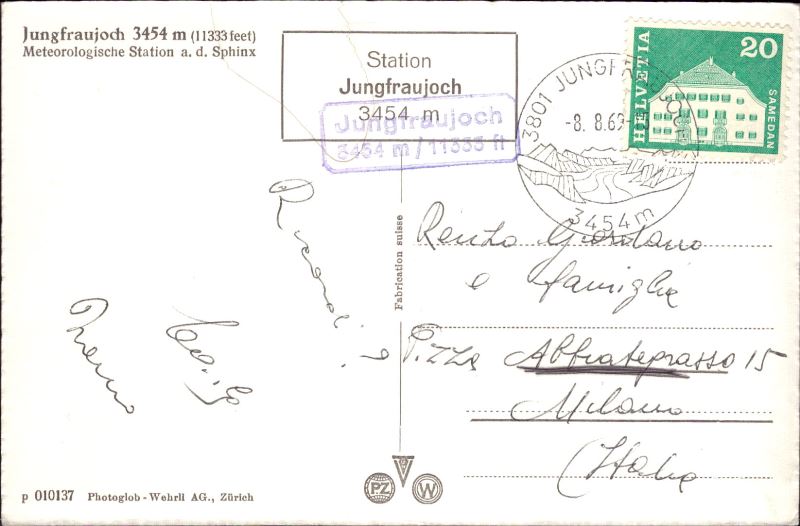 Jungfraujoch 3454 m (11333 feet)
Meteorologische Station a. d. Sphinx
Station
Jungfraujoch
3454 m
Jungfraujoch
3454 m / 11333 ft
3801 JUNGFRAUJOCH
-8. 8.69-
3454 m
HELVETIA
20
SAMEDAN
Fabrication suisse
Ricordi
Renzo Giordano
e famiglia
P.zza Abbiategrasso 15
Milano
(Italia
p 010137 Photoglob-Wehrli AG., Zürich
PZ
W